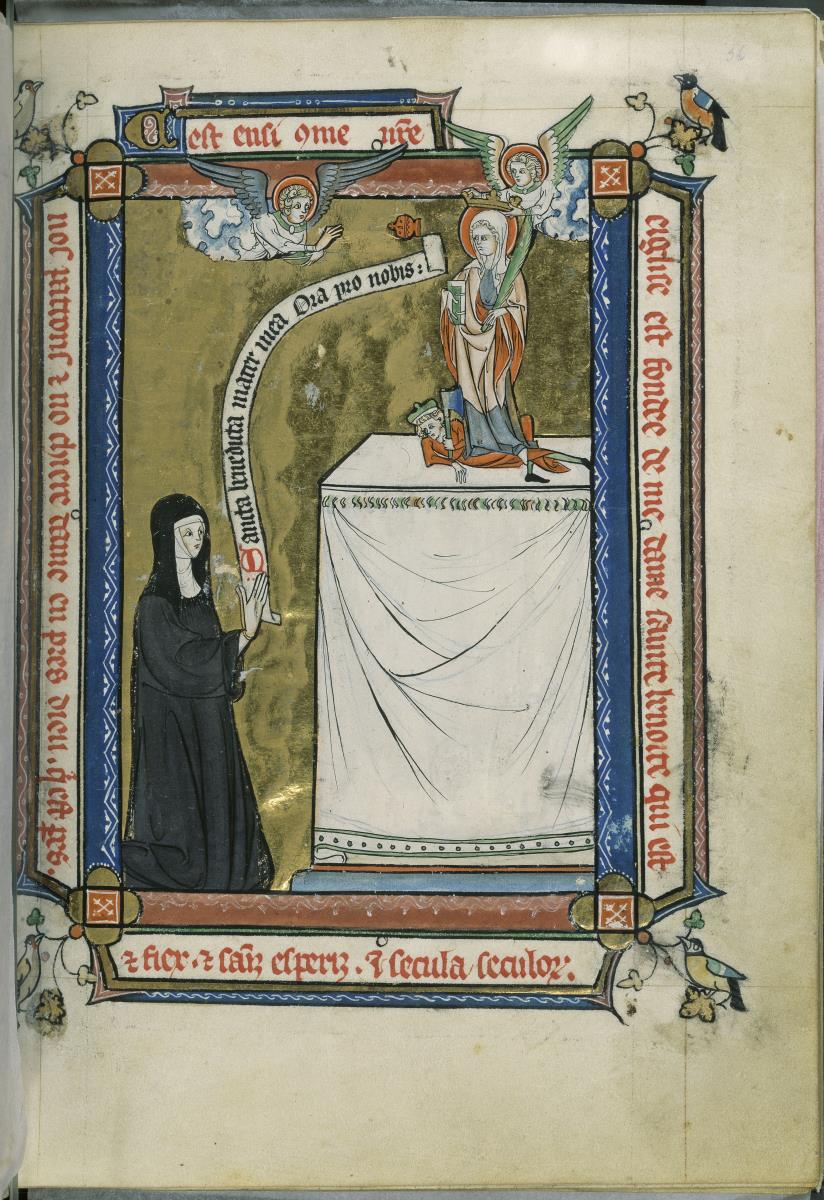 C est ensi 9me nr̃e
eiglise est fondee de me dame sainte benoite qui est
nos patrons ⁊ no chiere dame en pres dieu. q̃ est pes.
⁊ fiex. ⁊ sais esperis. I secula seculoꝝ.
Sancta benedicta mater mea Ora pro nobis: